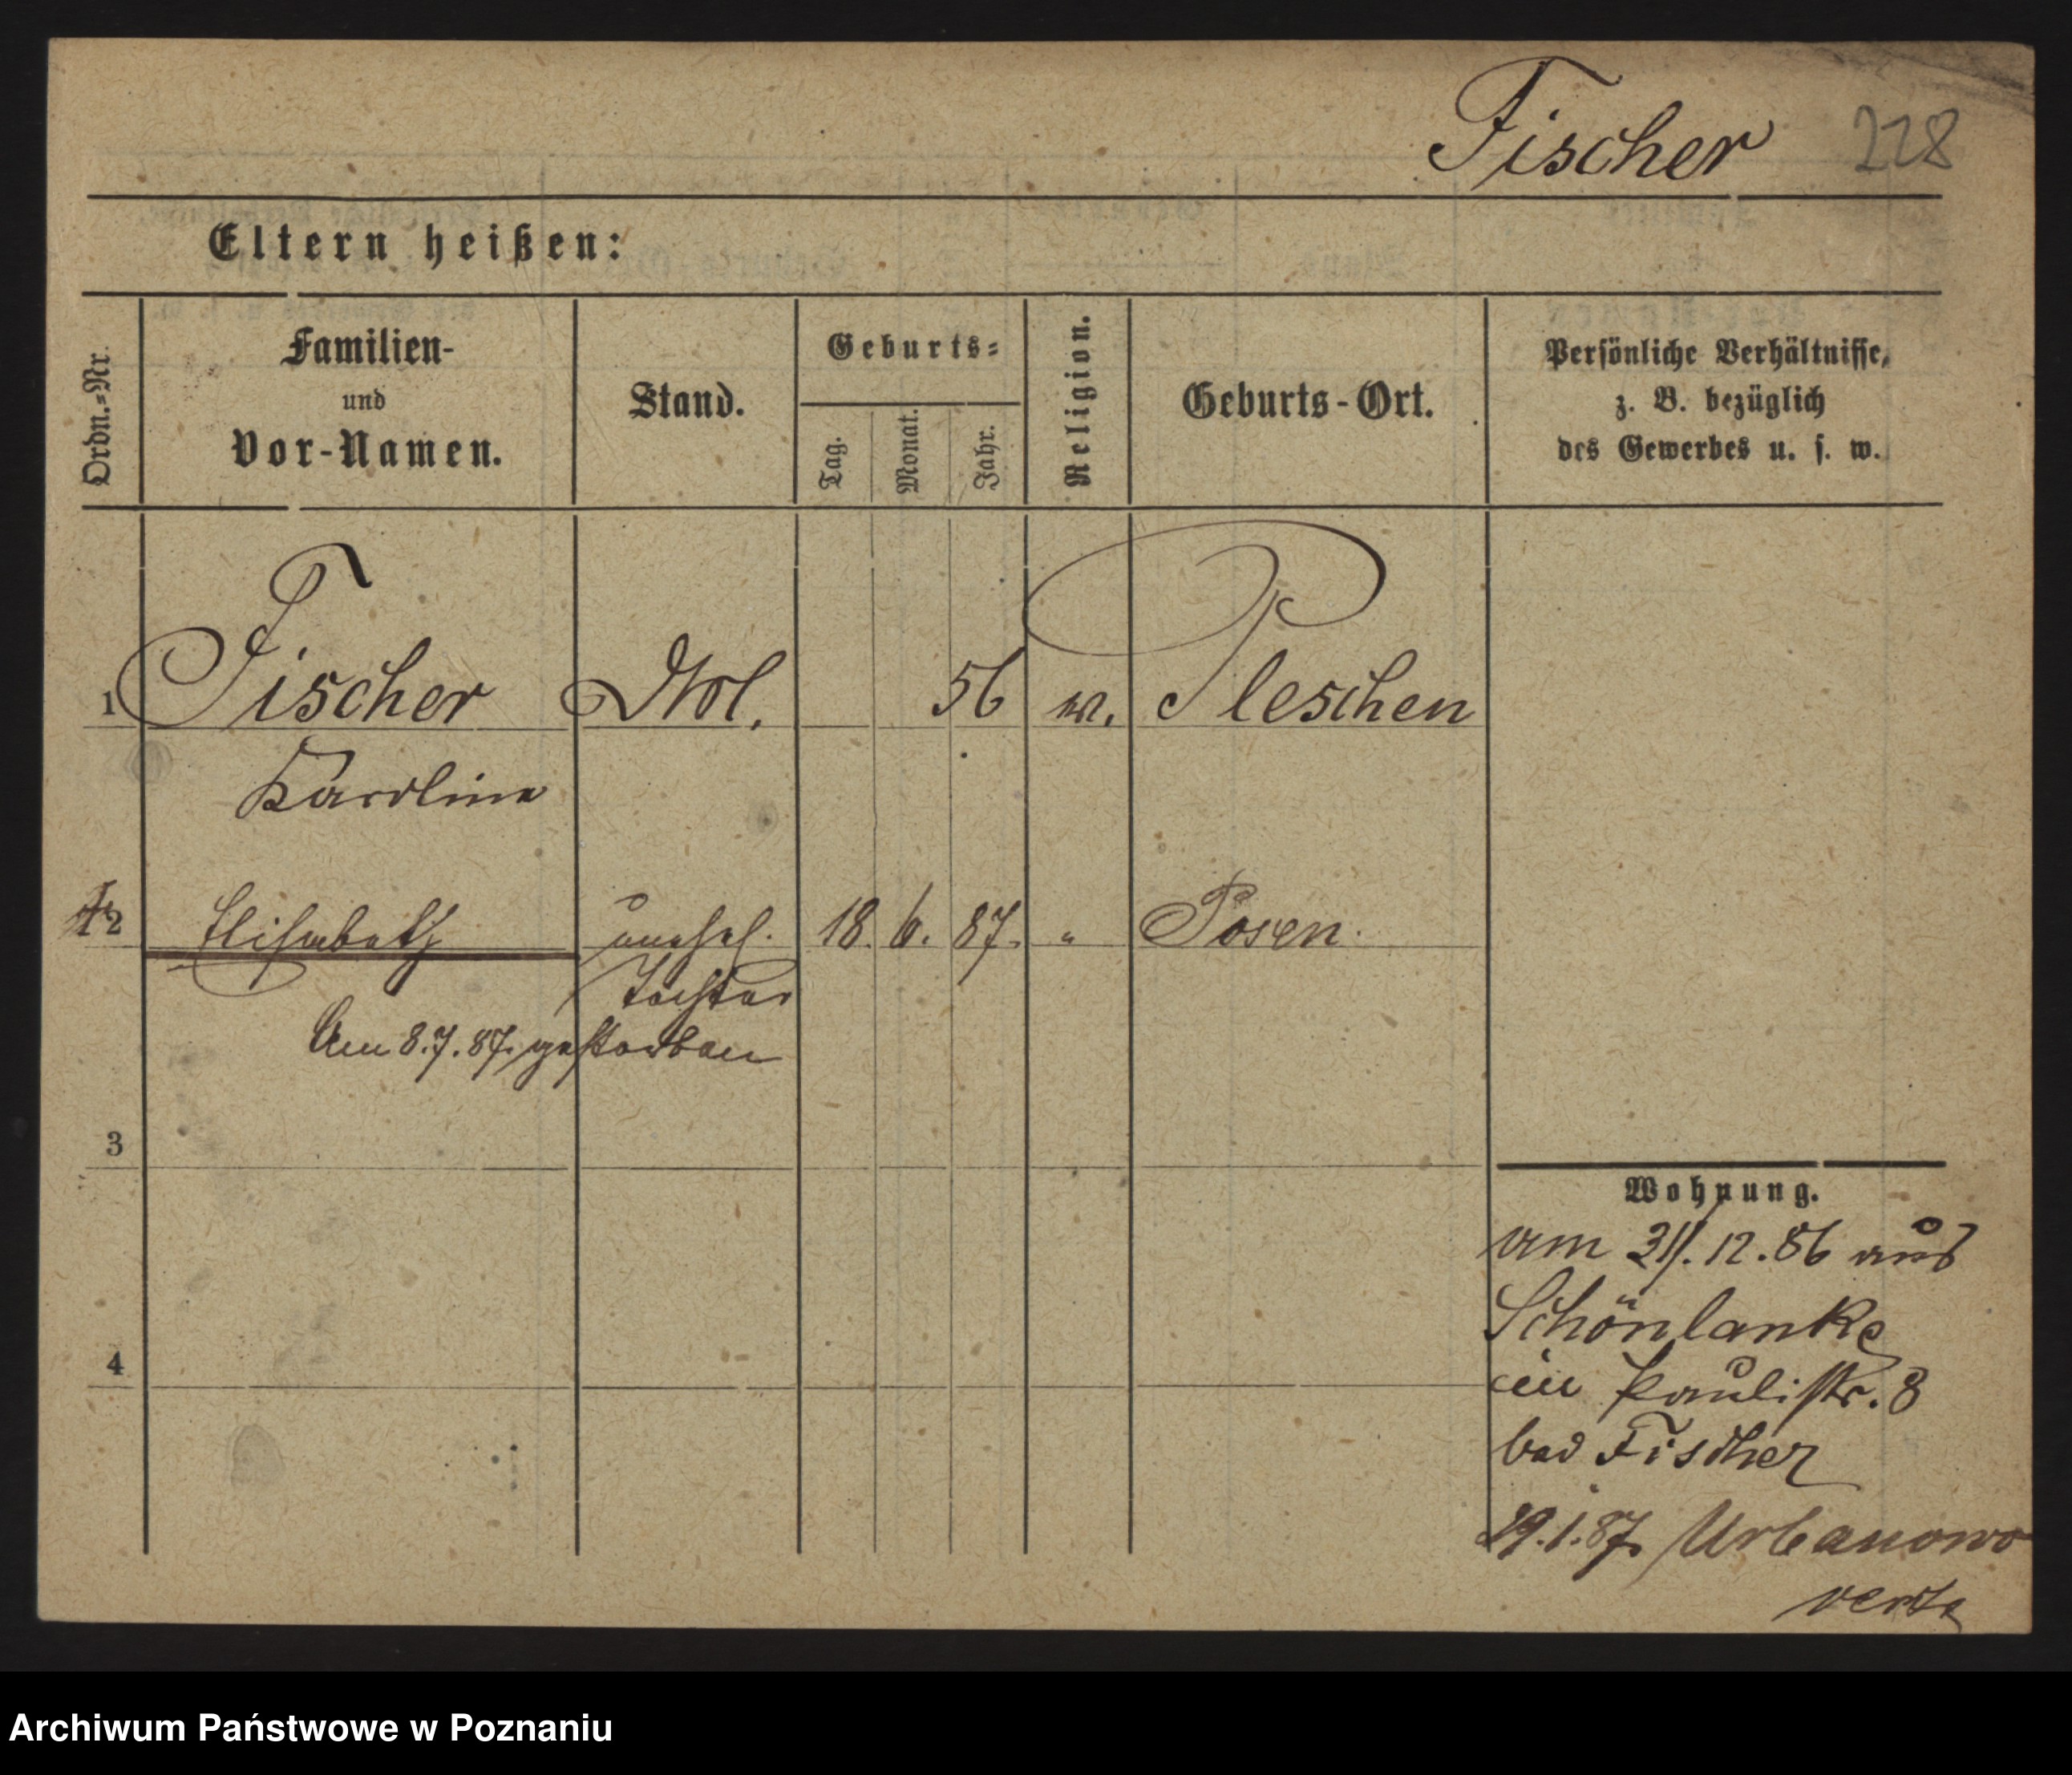 Fischer 228
Eltern heißen:
Ordn.=Nr.
Familien-
und
Vor-Namen.
Stand.
Geburts=
Tag.
Monat.
Jahr.
Religion.
Geburts-Ort.
Persönliche Verhältnisse,
z. B. bezüglich
des Gewerbes u. s. w.
1 Fischer 56 Pleschen
Karoline
2 Elisabeth unehel. 18. 6. 87. " Posen.
Tochter
Am 8.7.87. gestorben
3
Wohnung.
am 31/.12.86 aus
Schönlanke
4
in Paulistr. 8
bei Fischer
29.1.87. Urbanowo
verte
Archiwum Państwowe w Poznaniu